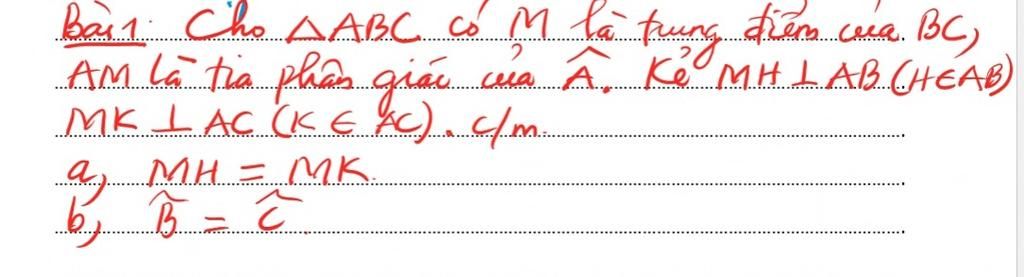 Bài 1. Cho △ABC có M là trung điểm của BC,
AM là tia phân giác của Â. Kẻ MH ⊥ AB (H∈AB)
MK ⊥ AC (K ∈ AC). c/m.
a, MH = MK.
b, B̂ = Ĉ.